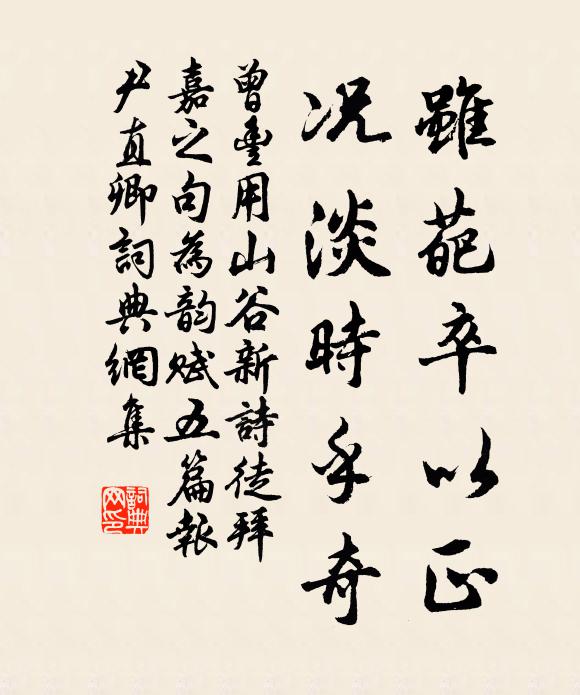 雖葩卒以正
況淡時乎奇
曾豐用山谷新詩徒拜
嘉之句為韵賦五篇報
尹直卿詞典網集
詞典
网印